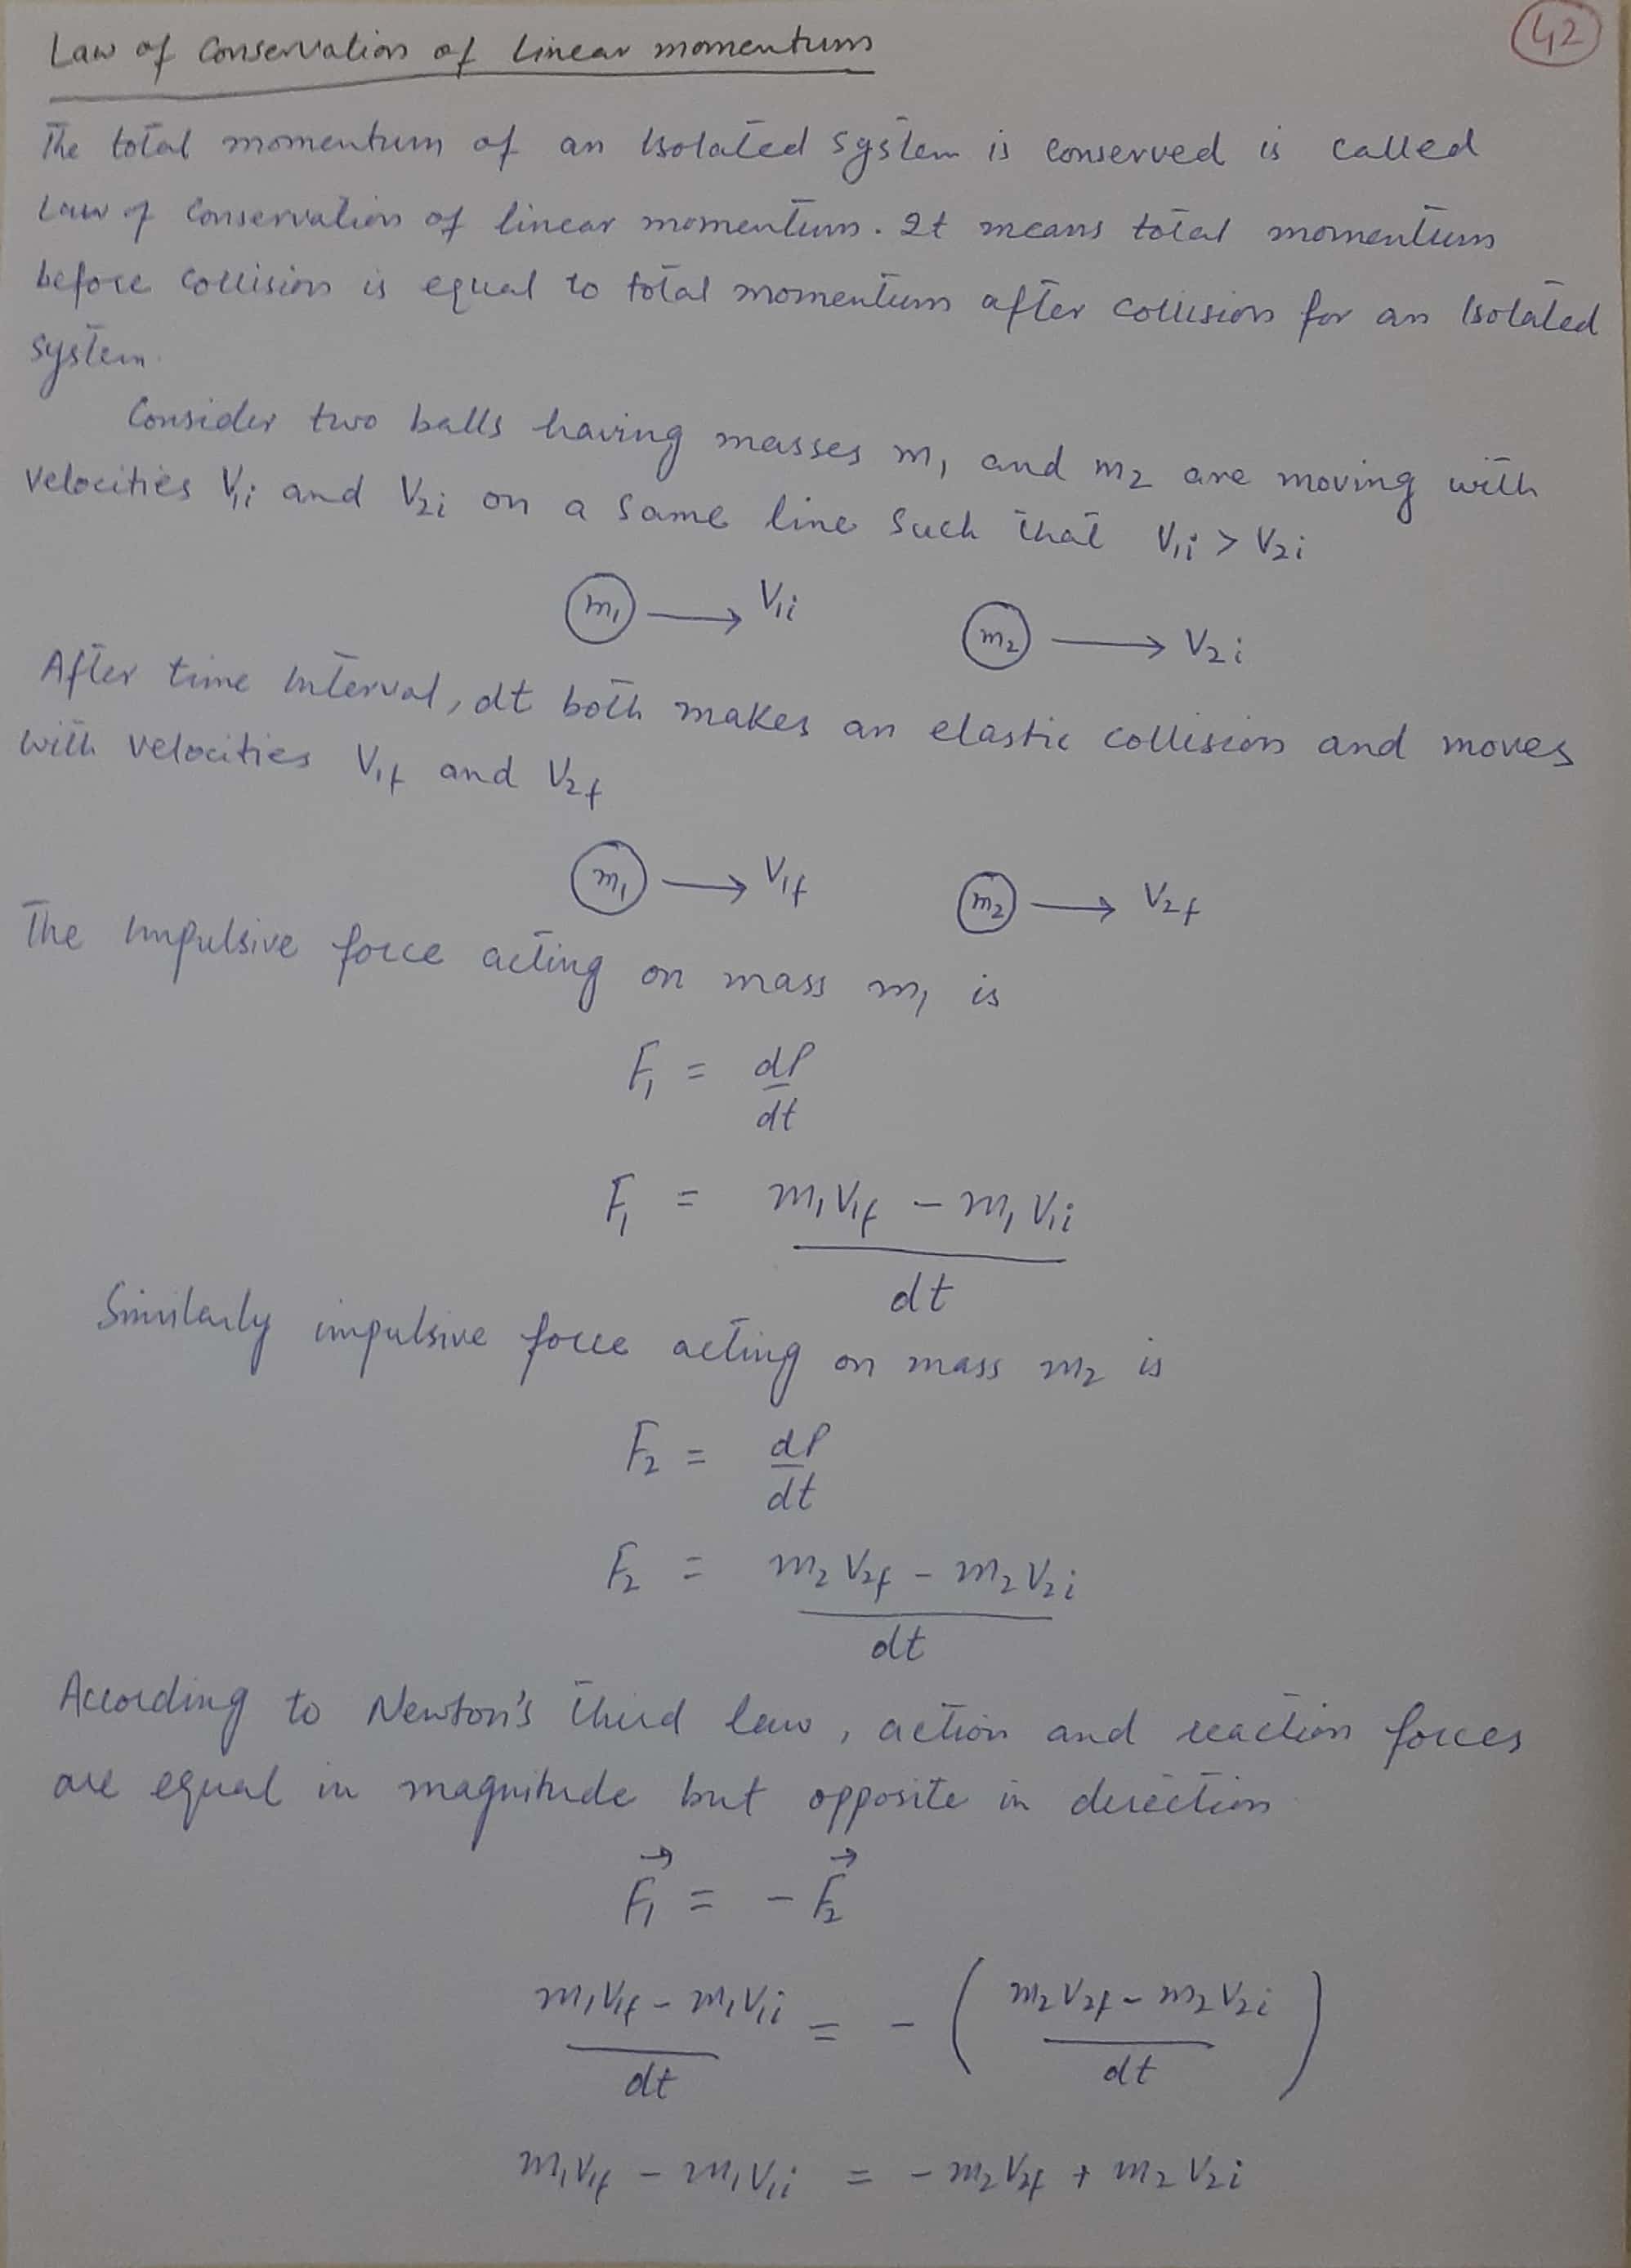 Law of Conservation of linear momentum
42
The total momentum of an Isolated system is conserved is called
Law of Conservation of linear momentum. It means total momentum
before collision is equal to total momentum after collision for an Isolated
system.
Consider two balls having masses m₁ and m₂ are moving with
velocities V₁ᵢ and V₂ᵢ on a same line such that V₁ᵢ > V₂ᵢ
m₁ → V₁ᵢ m₂ → V₂ᵢ
After time Interval, dt both makes an elastic collision and moves
with velocities V₁f and V₂f
m₁ → V₁f m₂ → V₂f
The Impulsive force acting on mass m₁ is
F₁ = dP
dt
F₁ = m₁V₁f - m₁V₁ᵢ
dt
Similarly impulsive force acting on mass m₂ is
F₂ = dP
dt
F₂ = m₂V₂f - m₂V₂ᵢ
dt
According to Newton's third law, action and reaction forces
are equal in magnitude but opposite in direction
F₁ = - F₂
m₁V₁f - m₁V₁ᵢ = - ( m₂V₂f - m₂V₂ᵢ )
dt dt
m₁V₁f - m₁V₁ᵢ = - m₂V₂f + m₂V₂ᵢ